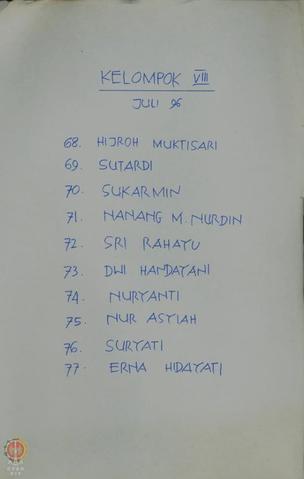 KELOMPOK VIII
JULI 96
68. HIJROH MUKTISARI
69. SUTARDI
70. SUKARMIN
71. NANANG M. NURDIN
72. SRI RAHAYU
73. DWI HANDAYANI
74. NURYANTI
75. NUR ASYIAH
76. SURYATI
77. ERNA HIDAYATI